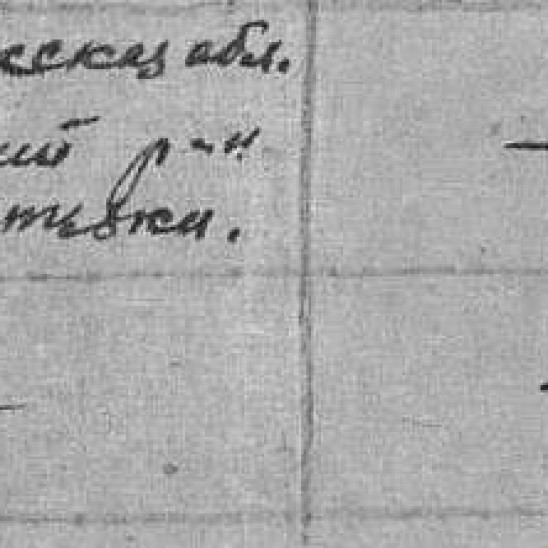 сская обл.
ий р-н
тьяки.